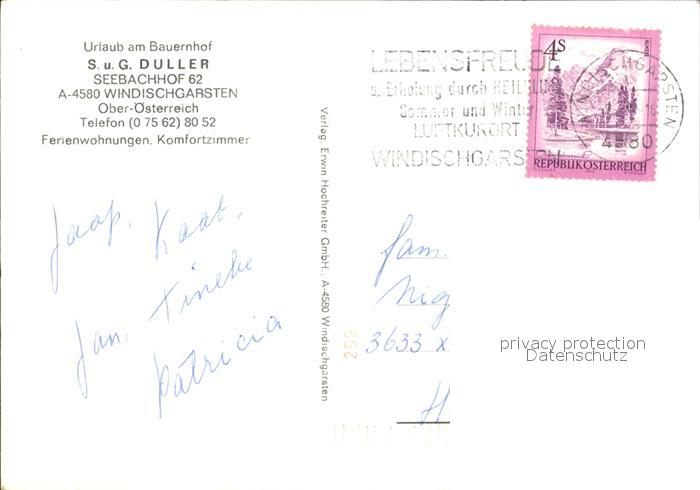 Urlaub am Bauernhof
S. u. G. DULLER
SEEBACHHOF 62
A-4580 WINDISCHGARSTEN
Ober-Österreich
Telefon (0 75 62) 80 52
Ferienwohnungen, Komfortzimmer
Jaap, Kaat,
Jan, Tineke
Patricia
Verlag: Erwin Hochreiter GmbH., A-4580 Windischgarsten
LEBENSFREUDE
u. Erholung durch
Sommer und Winter
LUFTKURORT
WINDISCHGARSTEN
4S
ALMSEE
REPUBLIK ÖSTERREICH
4580
Fam.
Nig
3633 x
H
259
privacy protection
Datenschutz